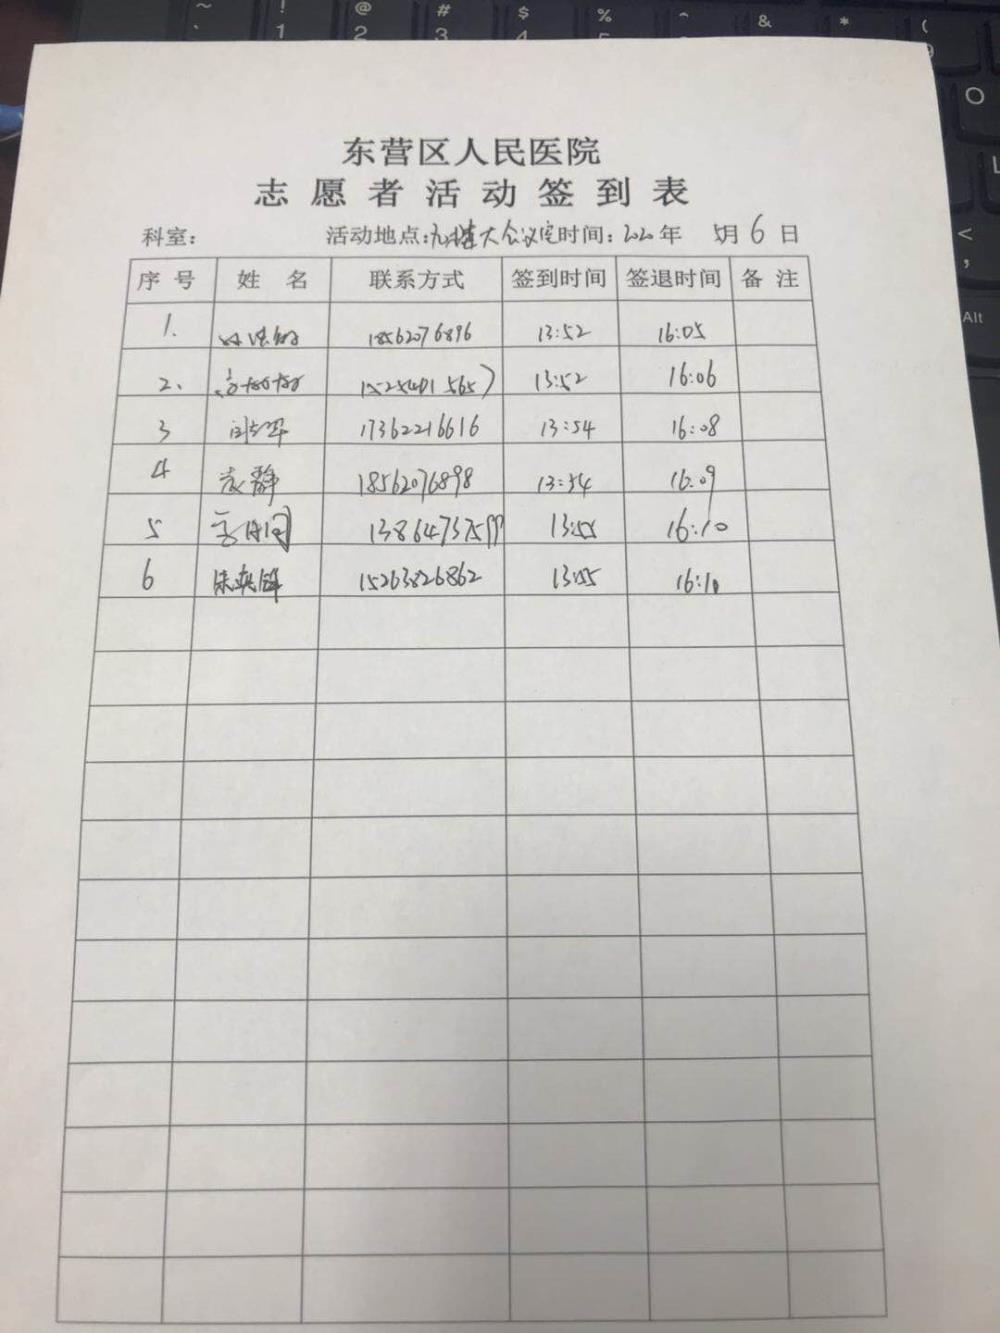 东营区人民医院
志愿者活动签到表
科室: 活动地点: 大会议室 时间: 2020年 5月 6 日
序号 姓名 联系方式 签到时间 签退时间 备注
1. 18562076896 13:52 16:05
2. 13:52 16:06
3 17362216616 13:54 16:08
4 袁静 18562076898 13:54 16:09
5 13:55 16:10
6 15263826862 13:55 16:10